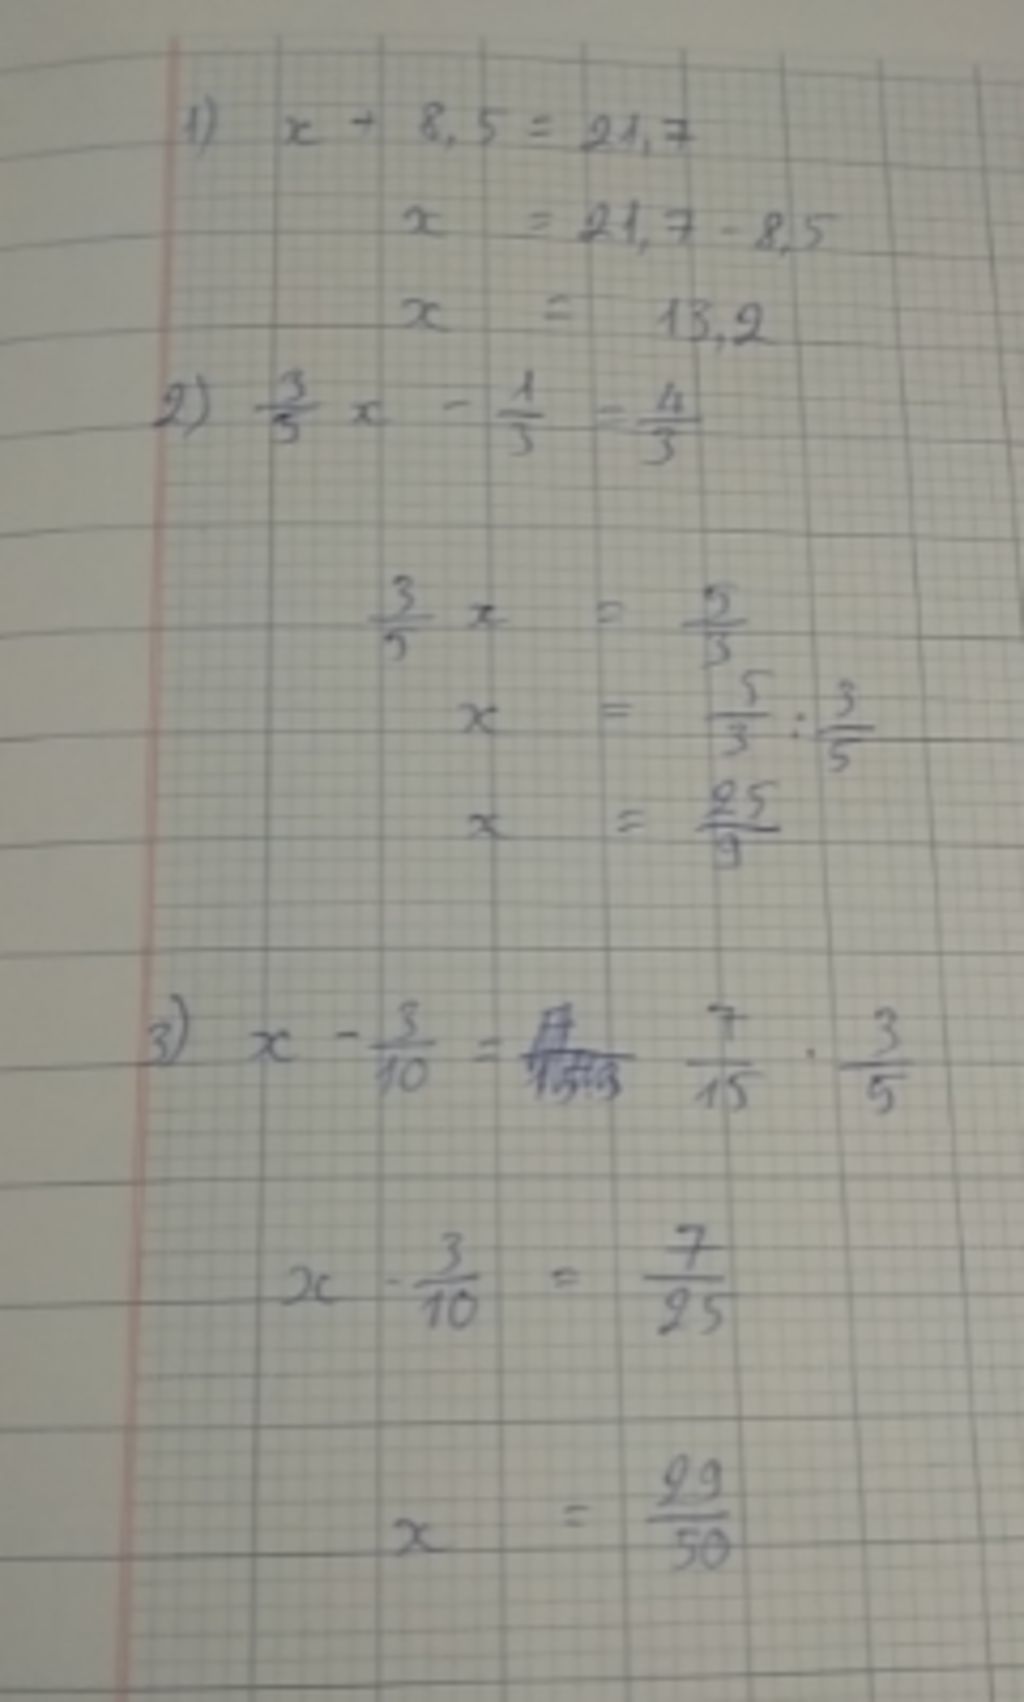 1) x + 8,5 = 21,7
x = 21,7 - 8,5
x = 13,2
2) 3/5 x - 1/3 = 4/3
3/5 x = 5/3
x = 5/3 : 3/5
x = 25/9
3) x - 3/10 = 7/15 · 3/5
x - 3/10 = 7/25
x = 29/50